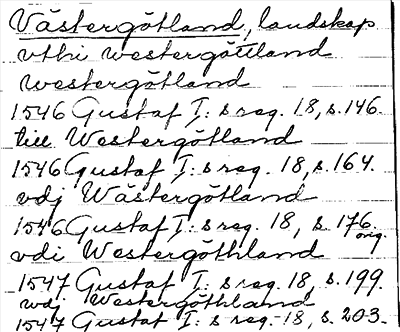 Västergötland, landskap
vthi westergöttland
westergötland
1546 Gustaf I:s reg. 18, s. 146.
till Westergötland
1546 Gustaf I:s reg. 18, s. 164.
vdj Wästergötland
1546 Gustaf I:s reg. 18, s. 176 orig.
vdi Westergöthland
1547 Gustaf I:s reg. 18, s. 199.
wdj Westergöthland
1547 Gustaf I:s reg. 18, s. 203.